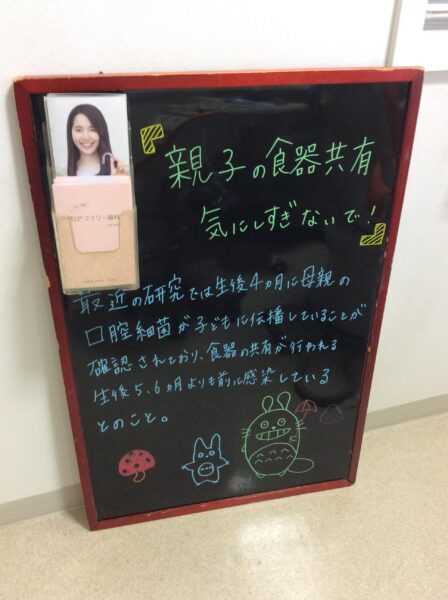 フラワー歯科
『親子の食器共有
気にしすぎないで!』
最近の研究では生後4カ月に母親の
口腔細菌が子どもに伝播していることが
確認されており、食器の共有が行われる
生後5、6カ月よりも前に感染している
とのこと。